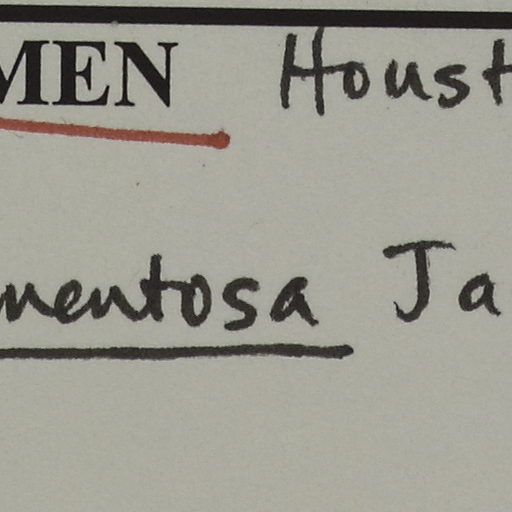 MEN Houst
mentosa Ja